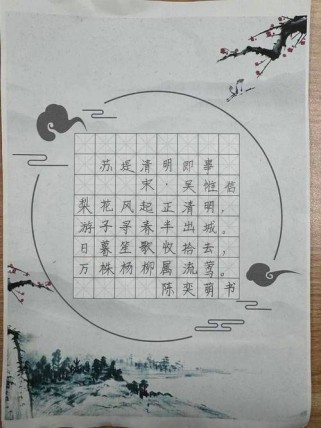 苏堤清明即事
宋·吴惟信
梨花风起正清明,
游子寻春半出城。
日暮笙歌收拾去,
万株杨柳属流莺。
陈奕萌书